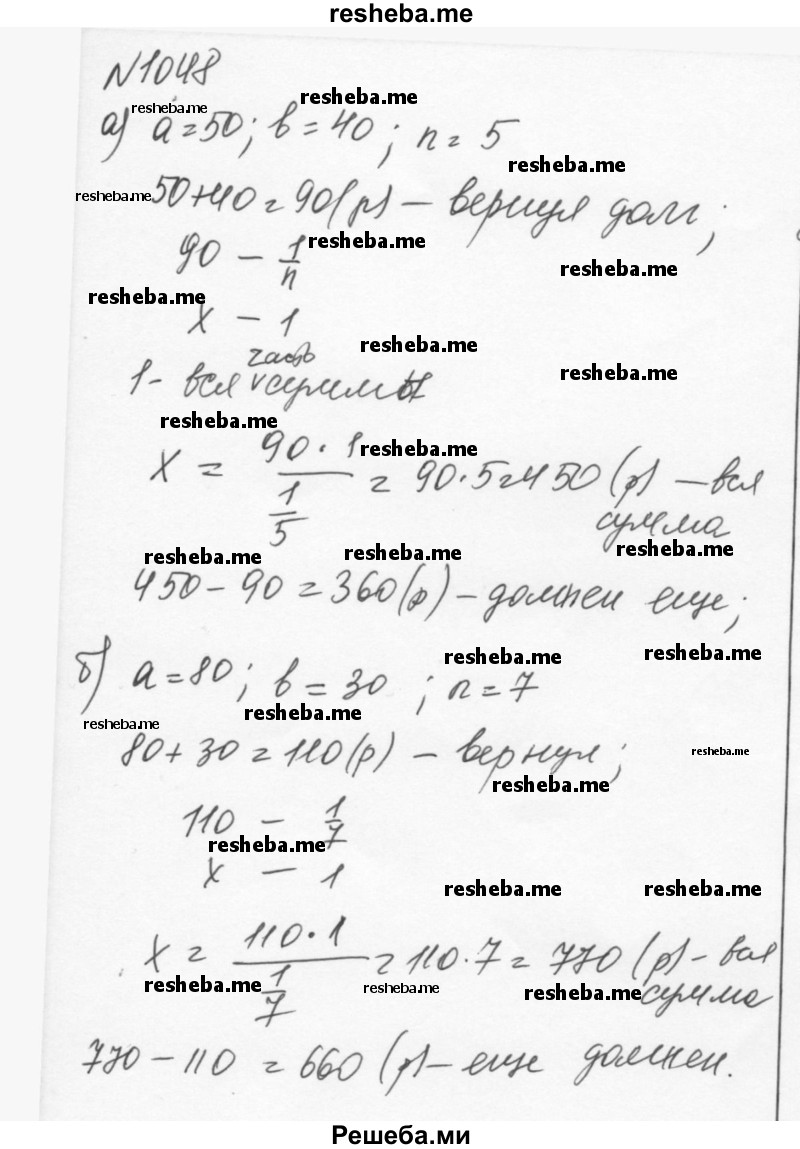 resheba.me
N1048
resheba.me resheba.me
а) a=50; b=40; n=5
resheba.me
resheba.me 50+40=90(р) – вернул долг;
90 – 1/n resheba.me
resheba.me
resheba.me
x – 1
resheba.me
часть
1- вся суммы
resheba.me
resheba.me
x = 90·1 / 1/5 = 90·5=450 (р) – вся
resheba.me
сумма
resheba.me resheba.me resheba.me
450-90=360(р) – должен еще;
resheba.me resheba.me
б) a=80; b=30; n=7
resheba.me resheba.me
80+30=110(р) – вернул;
resheba.me
resheba.me
110 – 1/7
resheba.me
x – 1
resheba.me resheba.me
x = 110·1 / 1/7 = 110·7= 770 (р) – вся
resheba.me resheba.me resheba.me сумма
770-110 = 660 (р) – еще должен.
Решеба.ми